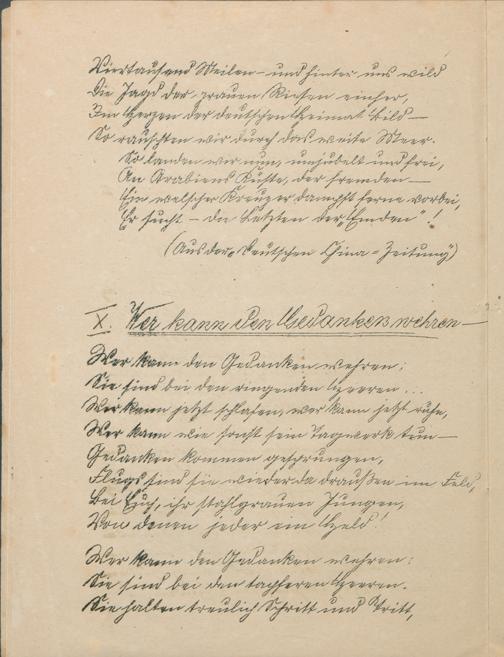 Viertausend Meilen – und hinter uns wild
Die Jagd der grauen Riesen einher,
Im Herzen der deutschen Heimat Bild –
So rauschten wir durch das weite Meer.
So landen wir nun, umjubelt und frei,
An Arabiens Küste, der fremden –
Ein welscher Kreuzer dampft ferne vorbei,
Er sucht – die Letzten der „Emden"!
(Aus der „Deutschen China-Zeitung")
X. Wer kann den Gedanken wehren –
Wer kann den Gedanken wehren:
Sie sind bei den ringenden Heeren...
Wer kann jetzt schlafen, wer kann jetzt ruhn,
Wer kann wie sonst sein Tagwerk tun –
Gedanken kommen gesprungen,
Flugs sind sie wieder da draußen im Feld,
Bei Euch, ihr stahlgrauen Jungen,
Von denen jeder ein Held!
Wer kann den Gedanken wehren:
Sie sind bei den tapferen Heeren.
Sie halten treulich Schritt und Tritt,